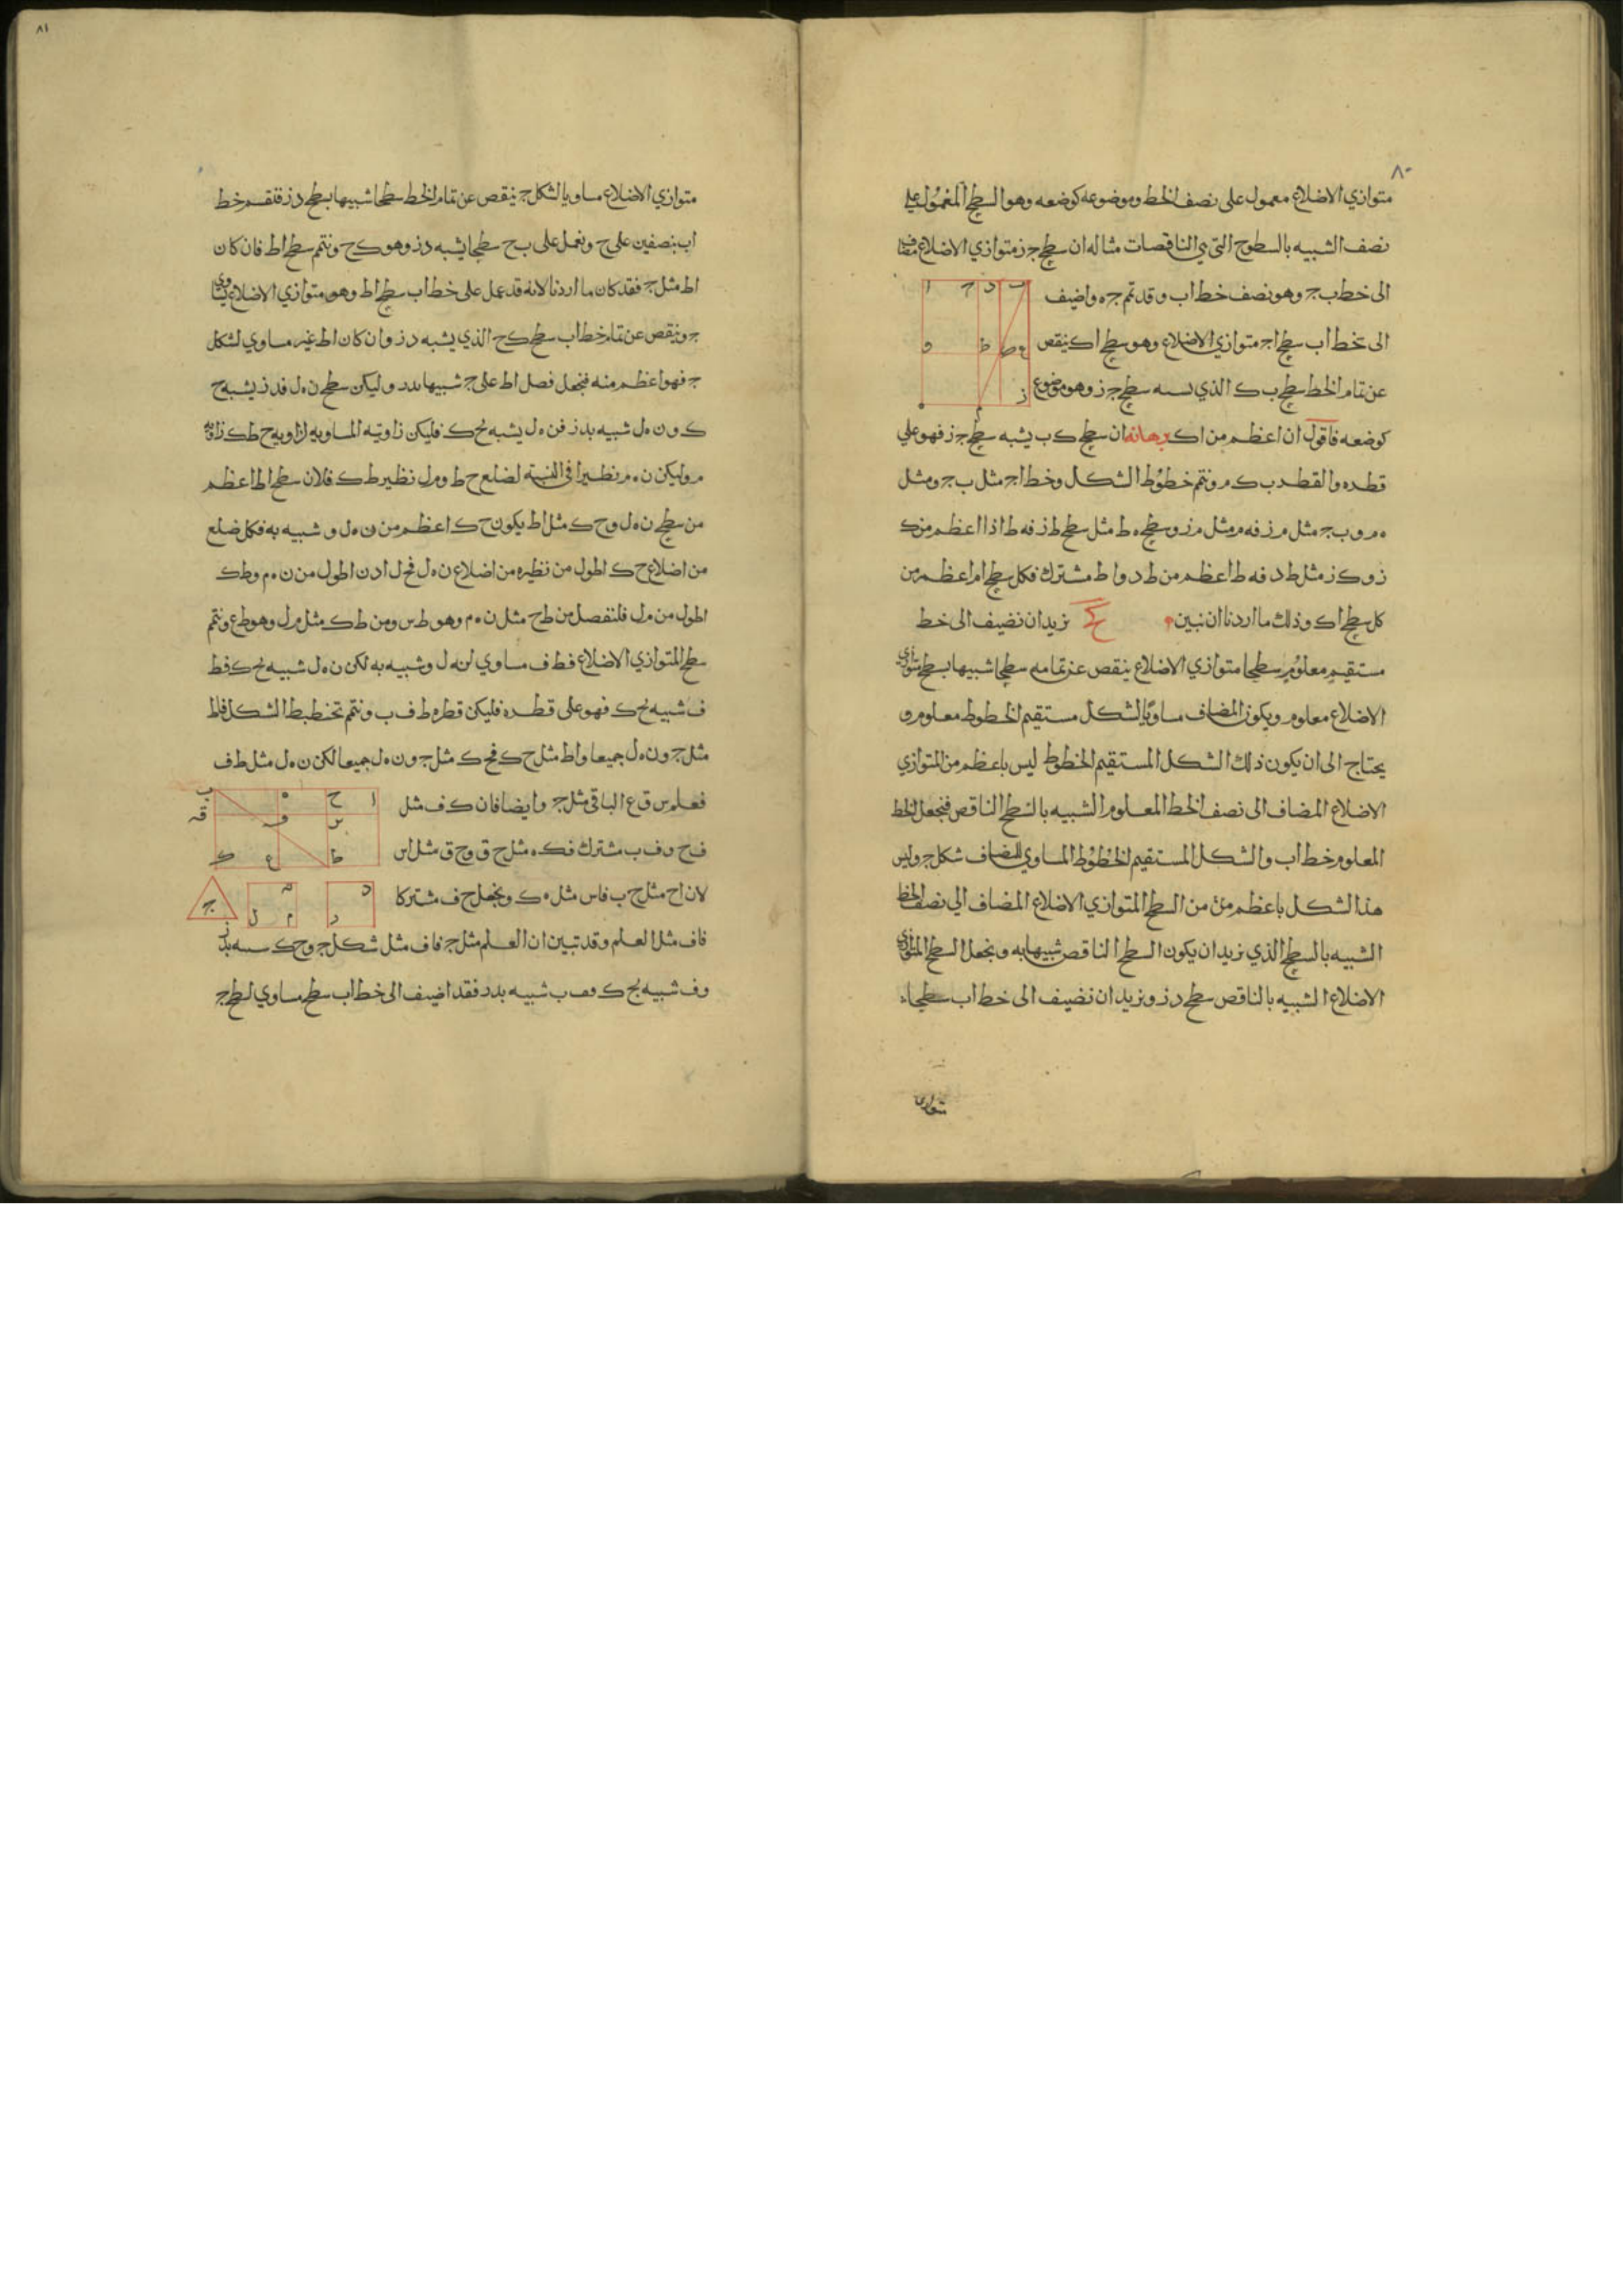 ٨٠
متوازي الاضلاع معمول على نصف الخط وموضوعه كوضعه وهو السطح المعمول على
نصف الشبيه بالسطوح التي هي الناقصات مثاله ان سطح جز متوازي الاضلاع مضاف
الى خط ب ج وهو نصف خط اب وقد تمم جه واضيف
الى خط اب سطح اج متوازي الاضلاع وهو سطح اك ينقص
عن تمام الخط سطح ب ك الذي يشبه سطح ج ز وهو موضوع
كوضعه فاقول ان اعظم من اك برهانه ان سطح ك ب يشبه سطح ج ز فهو على
قطره والقطر د ب ك م ونتمم خطوط الشكل وخط اج مثل ب ج ومثل
ه م و ب ج مثل م ز فه م مثل م ز وسطح ه ط مثل سطح ط ز فه ط اذا اعظم من ك
ز و ك ز مثل ط د فه ط اعظم من ط د و ا ط مشترك فكل سطح ام اعظم من
كل سطح اك وذلك ما اردنا ان نبين كح نريد ان نضيف الى خط
مستقيم معلوم سطحا متوازي الاضلاع ينقص عن تمامه سطحا شبيها بسطح متوازي
الاضلاع معلوم ويكون المضاف مساويا لشكل مستقيم الخطوط معلوم و
يحتاج الى ان يكون ذلك الشكل المستقيم الخطوط ليس باعظم من المتوازي
الاضلاع المضاف الى نصف الخط المعلوم الشبيه بالسطح الناقص فنجعل الخط
المعلوم خط اب والشكل المستقيم الخطوط المساوي للمضاف شكل ج وليس
هذا الشكل باعظم من من السطح المتوازي الاضلاع المضاف الى نصف الخط
الشبيه بالسطح الذي نريد ان يكون السطح الناقص شبيها به ونجعل السطح المتوازي
الاضلاع الشبيه بالناقص سطح د ز ونريد ان نضيف الى خط اب سطحا
متوازي
٨١
متوازي الاضلاع مساويا لشكل ج ينقص عن تمام الخط سطحا شبيها بسطح د ز فنقسم خط
اب بنصفين على ح ونعمل على ب ح سطحا يشبه د ز وهو ك ح ونتمم سطح اط فان كان
اط مثل ج فقد كان ما اردنا لانه قد عمل على خط اب سطح اط وهو متوازي الاضلاع يساوي
ج وينقص عن تمام خط اب سطح ك ح الذي يشبه د ز وان كان اط غير مساوي لشكل
ج فهو اعظم منه فنجعل فضل اط على ج شبيها بدز وليكن سطح ن ه ل فدز يشبه ح
ك و ن ه ل شبيه بدز فن ه ل يشبه ح ك فليكن زاويته المساويه لزاويه ح ط ك زاويه
م وليكن ن ه م نظيرا في النسبة لضلع ح ط و م ل نظير ط ك فلان سطح اط اعظم
من سطح ن ه ل و ح ك مثل اط يكون ح ك اعظم من ن ه ل و شبيه به فكل ضلع
من اضلاع ح ك اطول من نظيره من اضلاع ن ه ل فح ط اذن اطول من ن ه م و ط ك
اطول من م ل فلنفصل من ط ح مثل ن ه م وهو ط س ومن ط ك مثل م ل وهو ط ع ونتمم
سطح المتوازي الاضلاع فط ف مساوي لن ه ل وشبيه به لكن ن ه ل شبيه بح ك فط
ف شبيه بح ك فهو على قطره فليكن قطره ط ف ب ونتمم تخطيط الشكل فاط
مثل ج و ن ه ل جميعا واط مثل ح ك فح ك مثل ج و ن ه ل جميعا لكن ن ه ل مثل ط ف
فعلم س ق ع الباقي مثل ج وايضا فان ك ف مثل
ف ح و ف ب مشترك فك ه مثل ح ق و ح ق مثل اس
لان اح مثل ح ب فاس مثل ه ك ونجعل ح ف مشتركا
فاف مثل العلم وقد تبين ان العلم مثل ج فاف مثل شكل ج و ح ك يشبه بدز
و ف شبيه بح ك و ف ب شبيه بدز فقد اضيف الى خط اب سطح مساوي لسطح ج